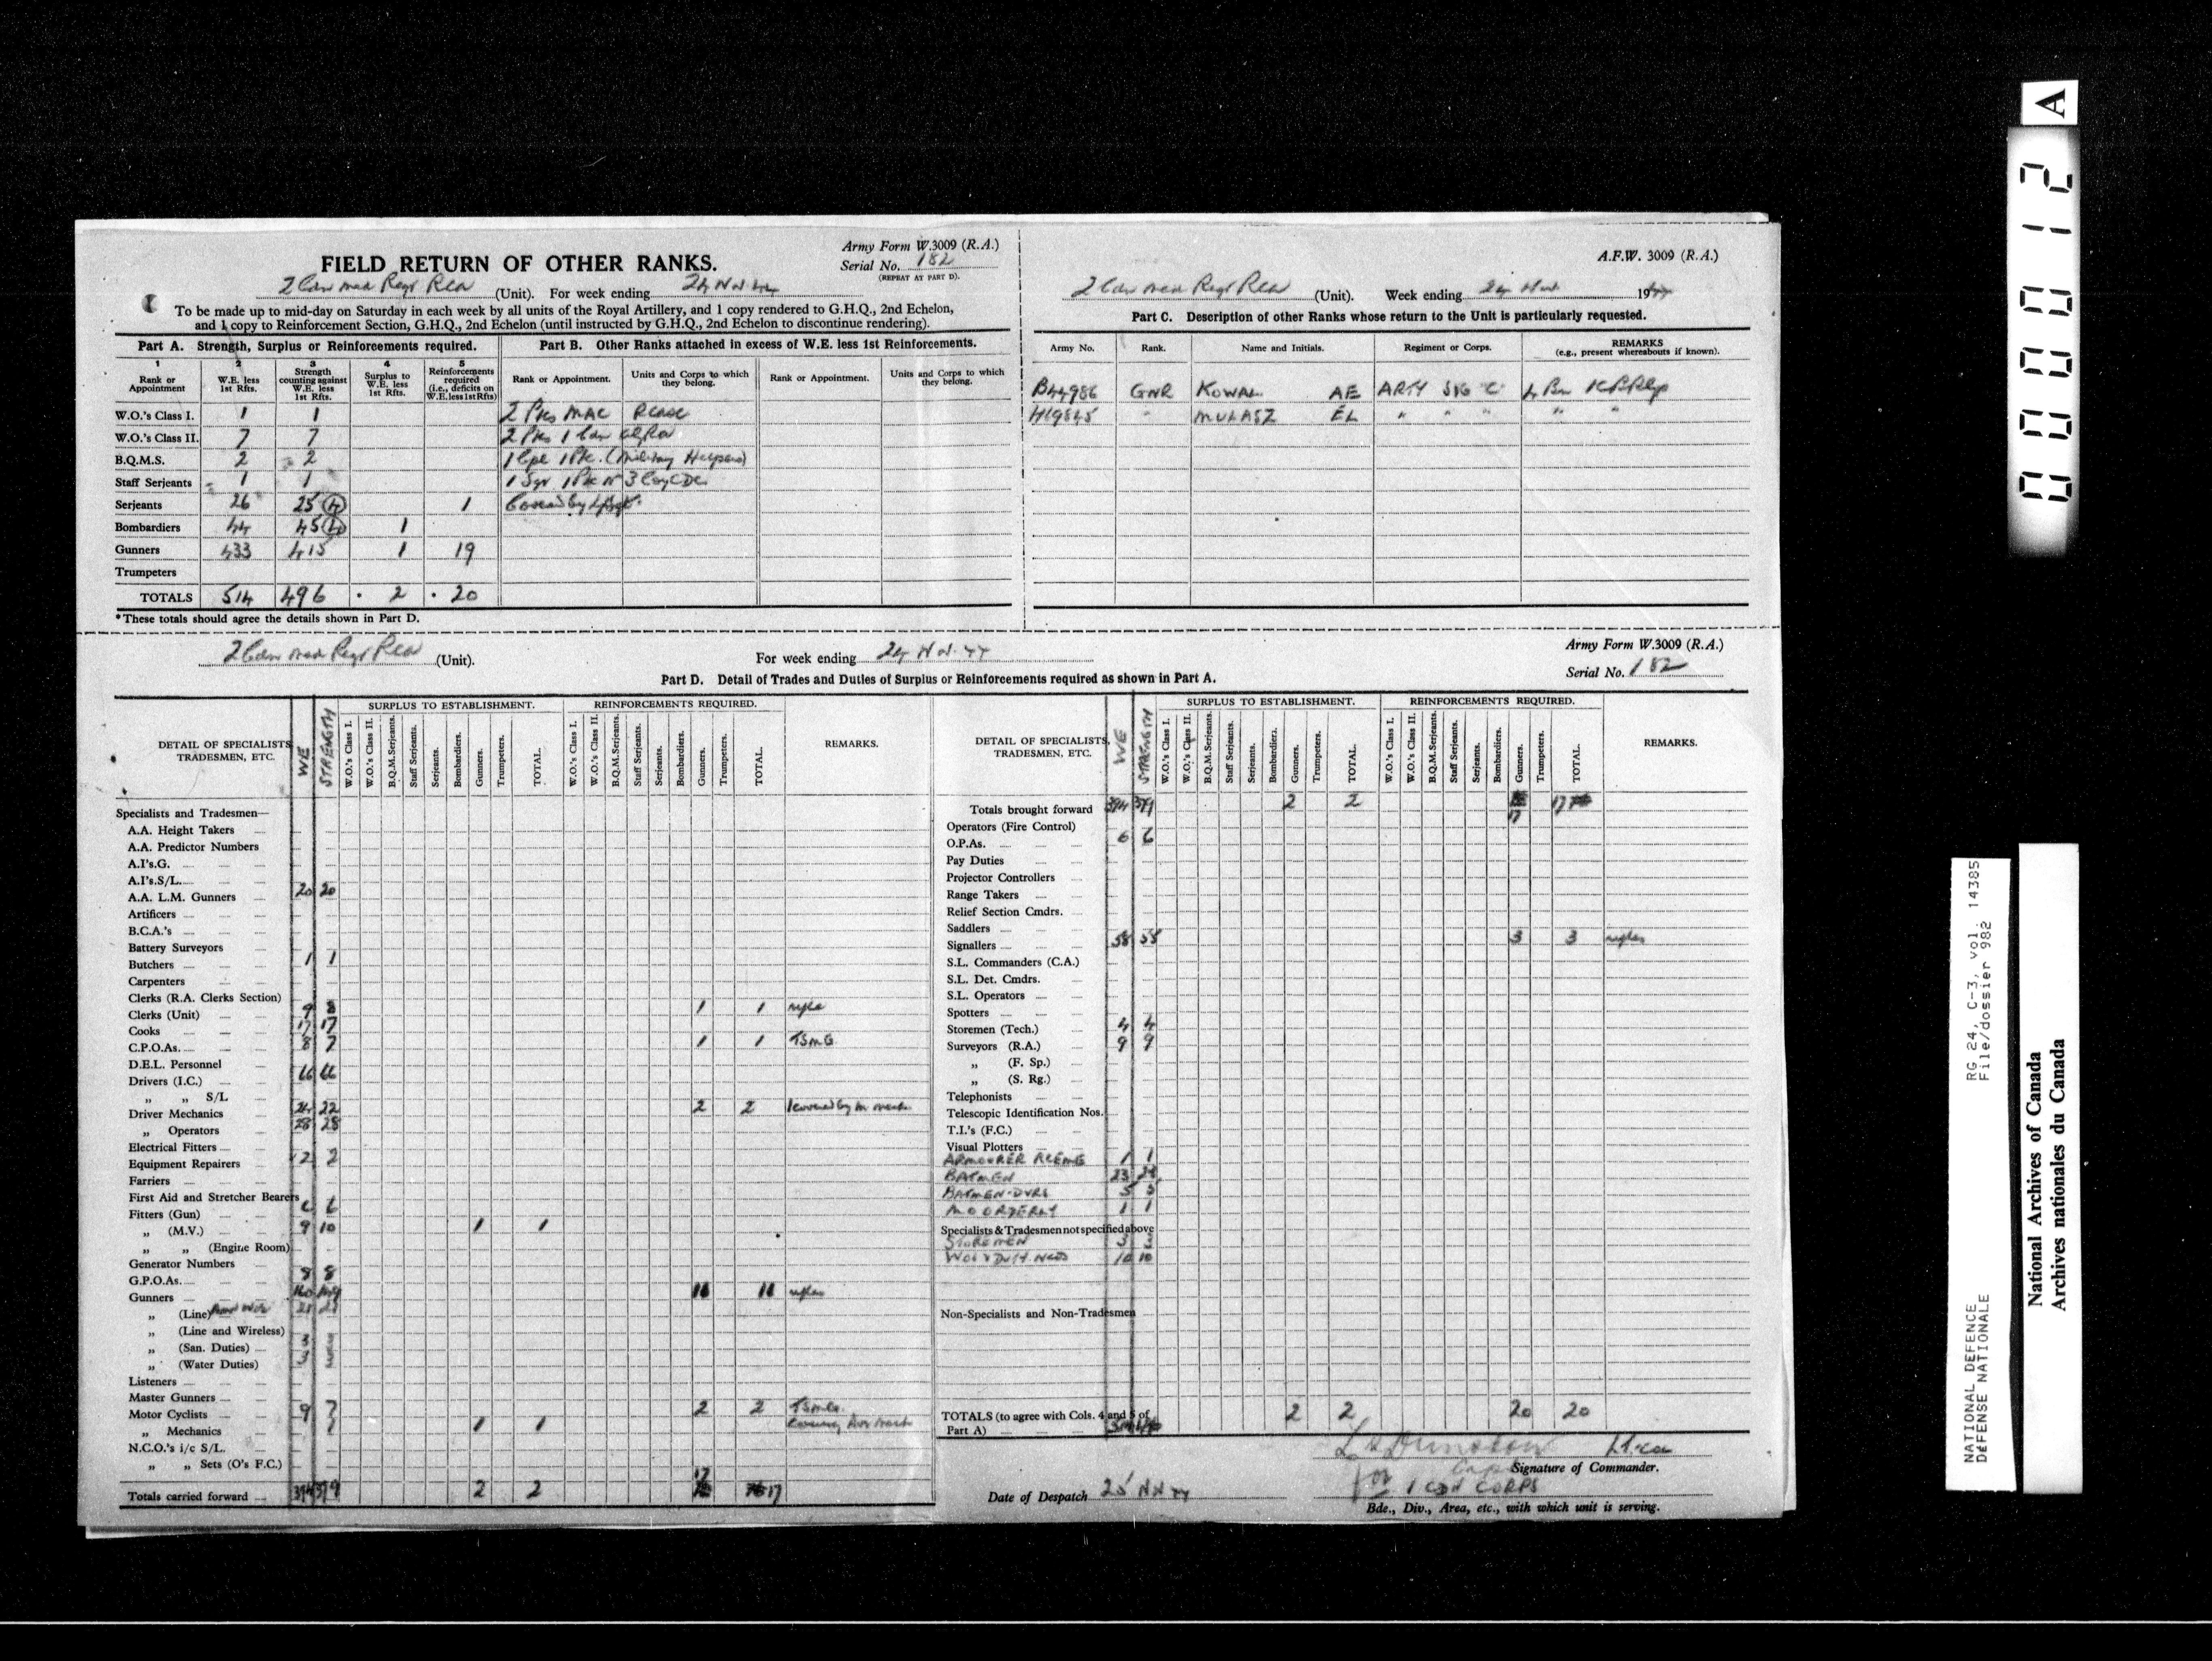 FIELD RETURN OF OTHER RANKS.
Army Form W.3009 (R.A.)
Serial No. 182
(REPEAT AT PART D).
2 Cdn Med Regt RCA (Unit). For week ending 24 Nov 44
To be made up to mid-day on Saturday in each week by all units of the Royal Artillery, and 1 copy rendered to G.H.Q., 2nd Echelon,
and 1 copy to Reinforcement Section, G.H.Q., 2nd Echelon (until instructed by G.H.Q., 2nd Echelon to discontinue rendering).
Part A. Strength, Surplus or Reinforcements required.
1 2 3 4 5
Rank or Appointment
W.E. less 1st Rfts.
Strength counting against W.E. less 1st Rfts.
Surplus to W.E. less 1st Rfts.
Reinforcements required (i.e., deficits on W.E. less 1st Rfts)
W.O.'s Class I. 1 1
W.O.'s Class II. 7 7
B.Q.M.S. 2 2
Staff Serjeants 1 1
Serjeants 26 25 (4) 1
Bombardiers 44 45 (4) 1
Gunners 433 415 1 19
Trumpeters
TOTALS 514 496 2 20
*These totals should agree the details shown in Part D.
Part B. Other Ranks attached in excess of W.E. less 1st Reinforcements.
Rank or Appointment. Units and Corps to which they belong. Rank or Appointment. Units and Corps to which they belong.
2 Ptes MAC
2 Ptes 1 Cdn
1 Cpl 1 Pte. (Military Helpers)
1 Sgt 1 Pte No 3 Coy CDC
Covered by L/Sgt.
A.F.W. 3009 (R.A.)
2 Cdn Med Regt RCA (Unit). Week ending 24 Nov 1944
Part C. Description of other Ranks whose return to the Unit is particularly requested.
Army No. Rank. Name and Initials. Regiment or Corps. REMARKS
(e.g., present whereabouts if known).
B44986 GNR KOWAL AE ARTY SIG "C" 4 Bn
H19845 " MULASZ EL " " " " "
2 Cdn Med Regt RCA (Unit). For week ending 24 Nov. 44
Army Form W.3009 (R.A.)
Serial No. 182
Part D. Detail of Trades and Duties of Surplus or Reinforcements required as shown in Part A.
DETAIL OF SPECIALISTS, TRADESMEN, ETC.
WE
STRENGTH
SURPLUS TO ESTABLISHMENT.
W.O.'s Class I. W.O.'s Class II. B.Q.M.Serjeants. Staff Serjeants. Serjeants. Bombardiers. Gunners. Trumpeters. TOTAL.
REINFORCEMENTS REQUIRED.
W.O.'s Class I. W.O.'s Class II. B.Q.M.Serjeants. Staff Serjeants. Serjeants. Bombardiers. Gunners. Trumpeters. TOTAL.
REMARKS.
Specialists and Tradesmen—
A.A. Height Takers
A.A. Predictor Numbers
A.I's.G.
A.I's.S/L.
A.A. L.M. Gunners 20 20
Artificers
B.C.A.'s
Battery Surveyors
Butchers 1 1
Carpenters
Clerks (R.A. Clerks Section)
Clerks (Unit) 9 8 1 1 rifle
Cooks 17 17
C.P.O.As. 8 7 1 1 TSMG.
D.E.L. Personnel
Drivers (I.C.) 66 66
„ „ S/L
Driver Mechanics 24 22 2 2 1 covered by M mech.
„ Operators 28 28
Electrical Fitters
Equipment Repairers 2 2
Farriers
First Aid and Stretcher Bearers
Fitters (Gun) 6 6
„ (M.V.) 9 10 1 1
„ „ (Engine Room)
Generator Numbers
G.P.O.As. 8 8
Gunners 160 149 11 11 rifles
„ (Line) 21 21
„ (Line and Wireless)
„ (San. Duties) 3 3
„ (Water Duties) 3 3
Listeners
Master Gunners
Motor Cyclists 9 7 2 2 TSMG.
„ Mechanics 1 1 1
N.C.O.'s i/c S/L.
„ „ Sets (O's F.C.)
Totals carried forward 394 379 2 2 17 17
DETAIL OF SPECIALISTS, TRADESMEN, ETC.
WE
STRENGTH
SURPLUS TO ESTABLISHMENT.
W.O.'s Class I. W.O.'s Class II. B.Q.M.Serjeants. Staff Serjeants. Serjeants. Bombardiers. Gunners. Trumpeters. TOTAL.
REINFORCEMENTS REQUIRED.
W.O.'s Class I. W.O.'s Class II. B.Q.M.Serjeants. Staff Serjeants. Serjeants. Bombardiers. Gunners. Trumpeters. TOTAL.
REMARKS.
Totals brought forward 394 379 2 2 17 17
Operators (Fire Control)
O.P.As. 6 6
Pay Duties
Projector Controllers
Range Takers
Relief Section Cmdrs.
Saddlers
Signallers 58 55 3 3 rifles
S.L. Commanders (C.A.)
S.L. Det. Cmdrs.
S.L. Operators
Spotters
Storemen (Tech.) 4 4
Surveyors (R.A.) 9 9
„ (F. Sp.)
„ (S. Rg.)
Telephonists
Telescopic Identification Nos.
T.I.'s (F.C.)
Visual Plotters
ARMOURER RCEME 1 1
BATMEN 23 23
BATMEN-DVRS 5 5
M O ORDERLY 1 1
Specialists & Tradesmen not specified above
STOREMEN 3 3
10 10
Non-Specialists and Non-Tradesmen
TOTALS (to agree with Cols. 4 and 5 of Part A) 2 2 20 20
Lt. RCA
Signature of Commander.
for Capt
Date of Despatch 25 Nov 44
1 CDN CORPS
Bde., Div., Area, etc., with which unit is serving.
000012
A
RG 24, C-3, vol. 14385
File/dossier 982
NATIONAL DEFENCE
DEFENSE NATIONALE
National Archives of Canada
Archives nationales du Canada